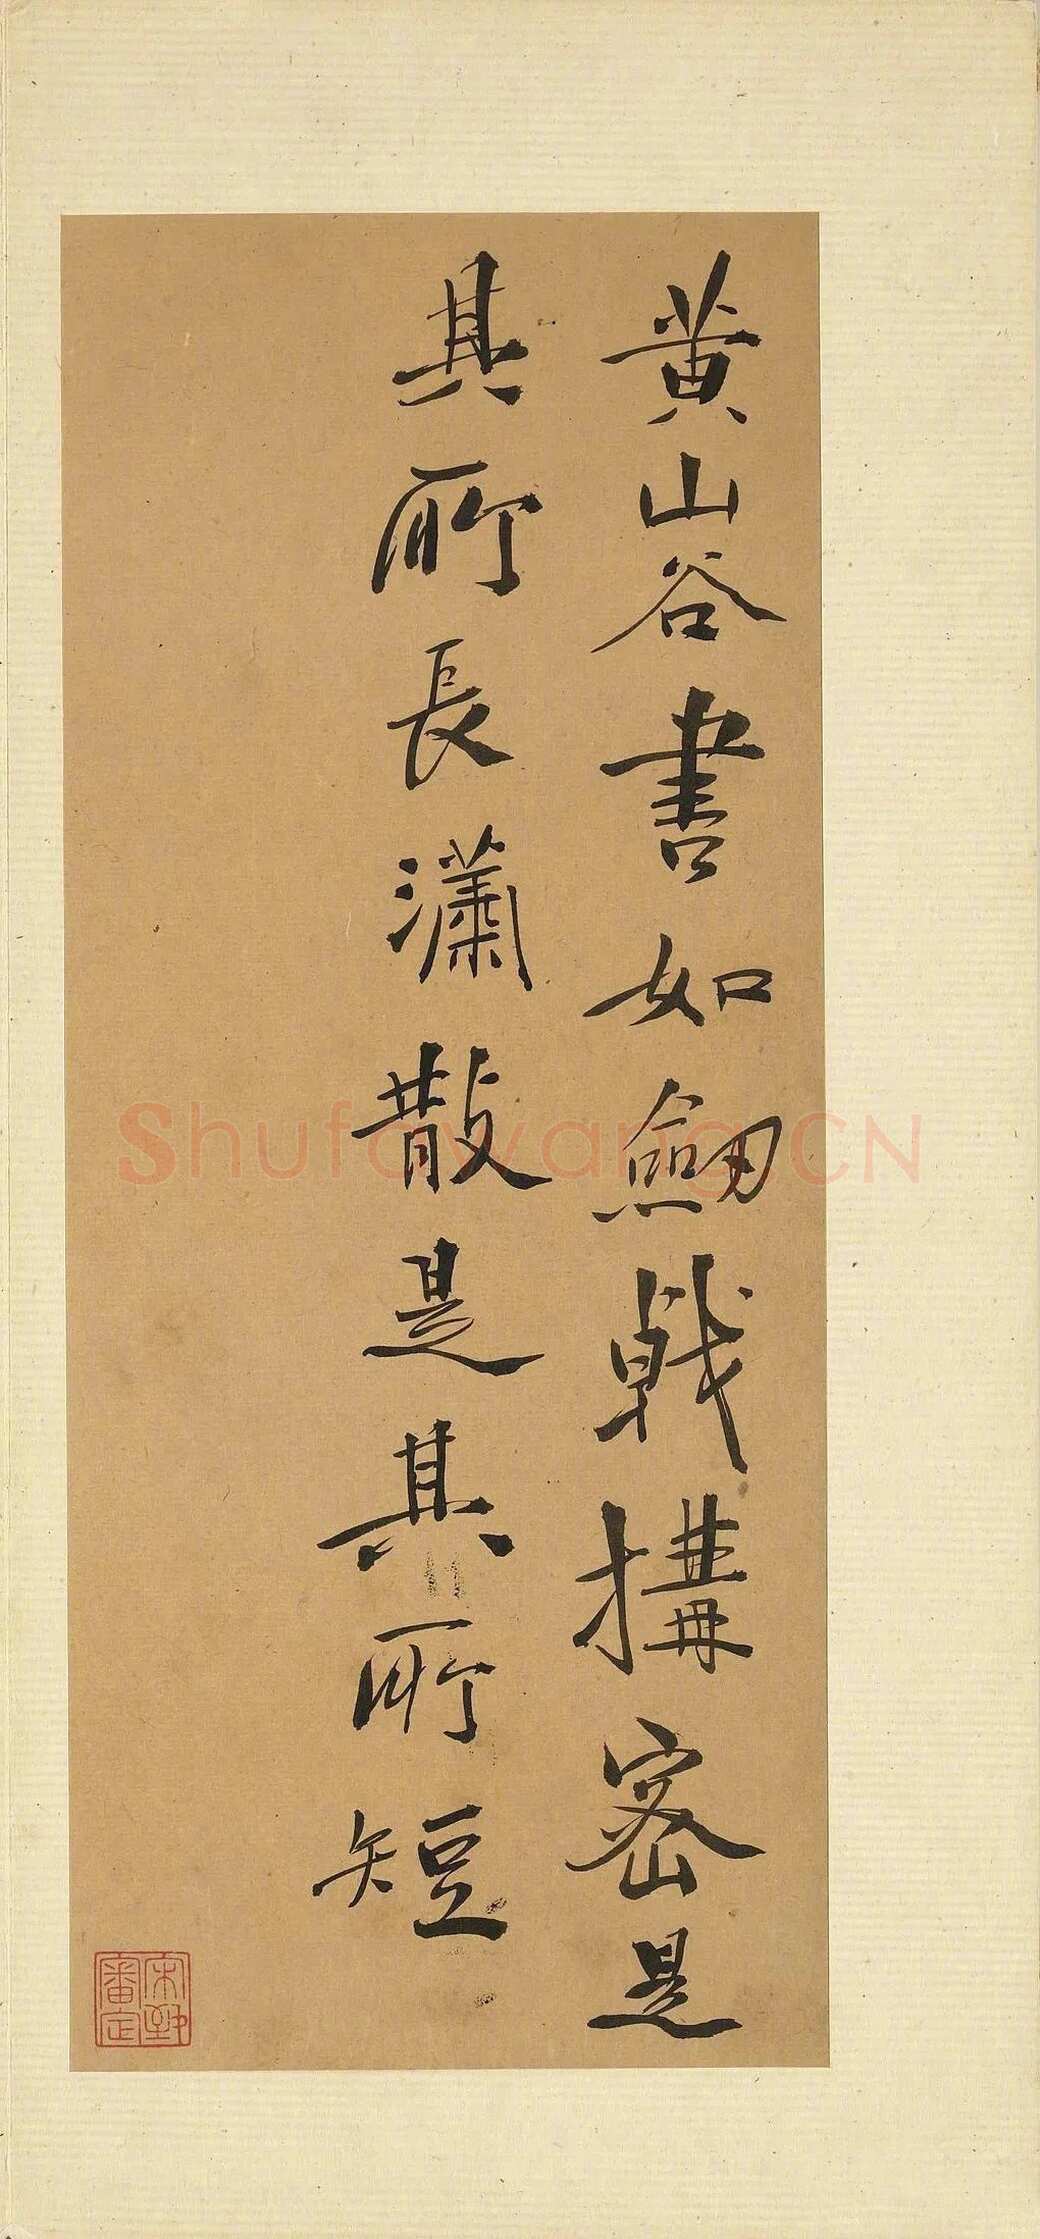 黄山谷書如劔戟搆密是
其所長瀟散是其所短
宋犖審定
Shufawang.CN